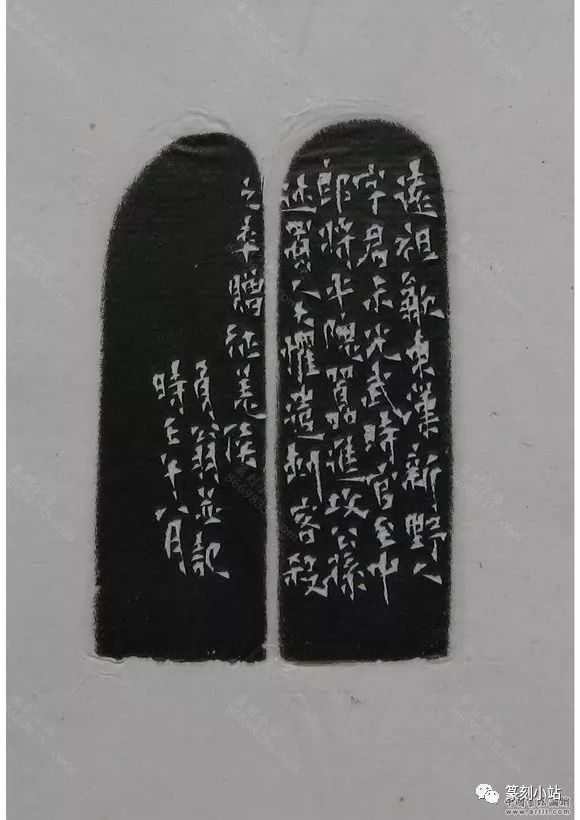 遠祖歙東漢新野人
字君未光武時官至中
郎將平隗囂品進攻公孫
述蜀人大懼遣刺客殺
之卒贈征羌侯
負翁並記
時壬午八月
篆刻小站
www.artit.com